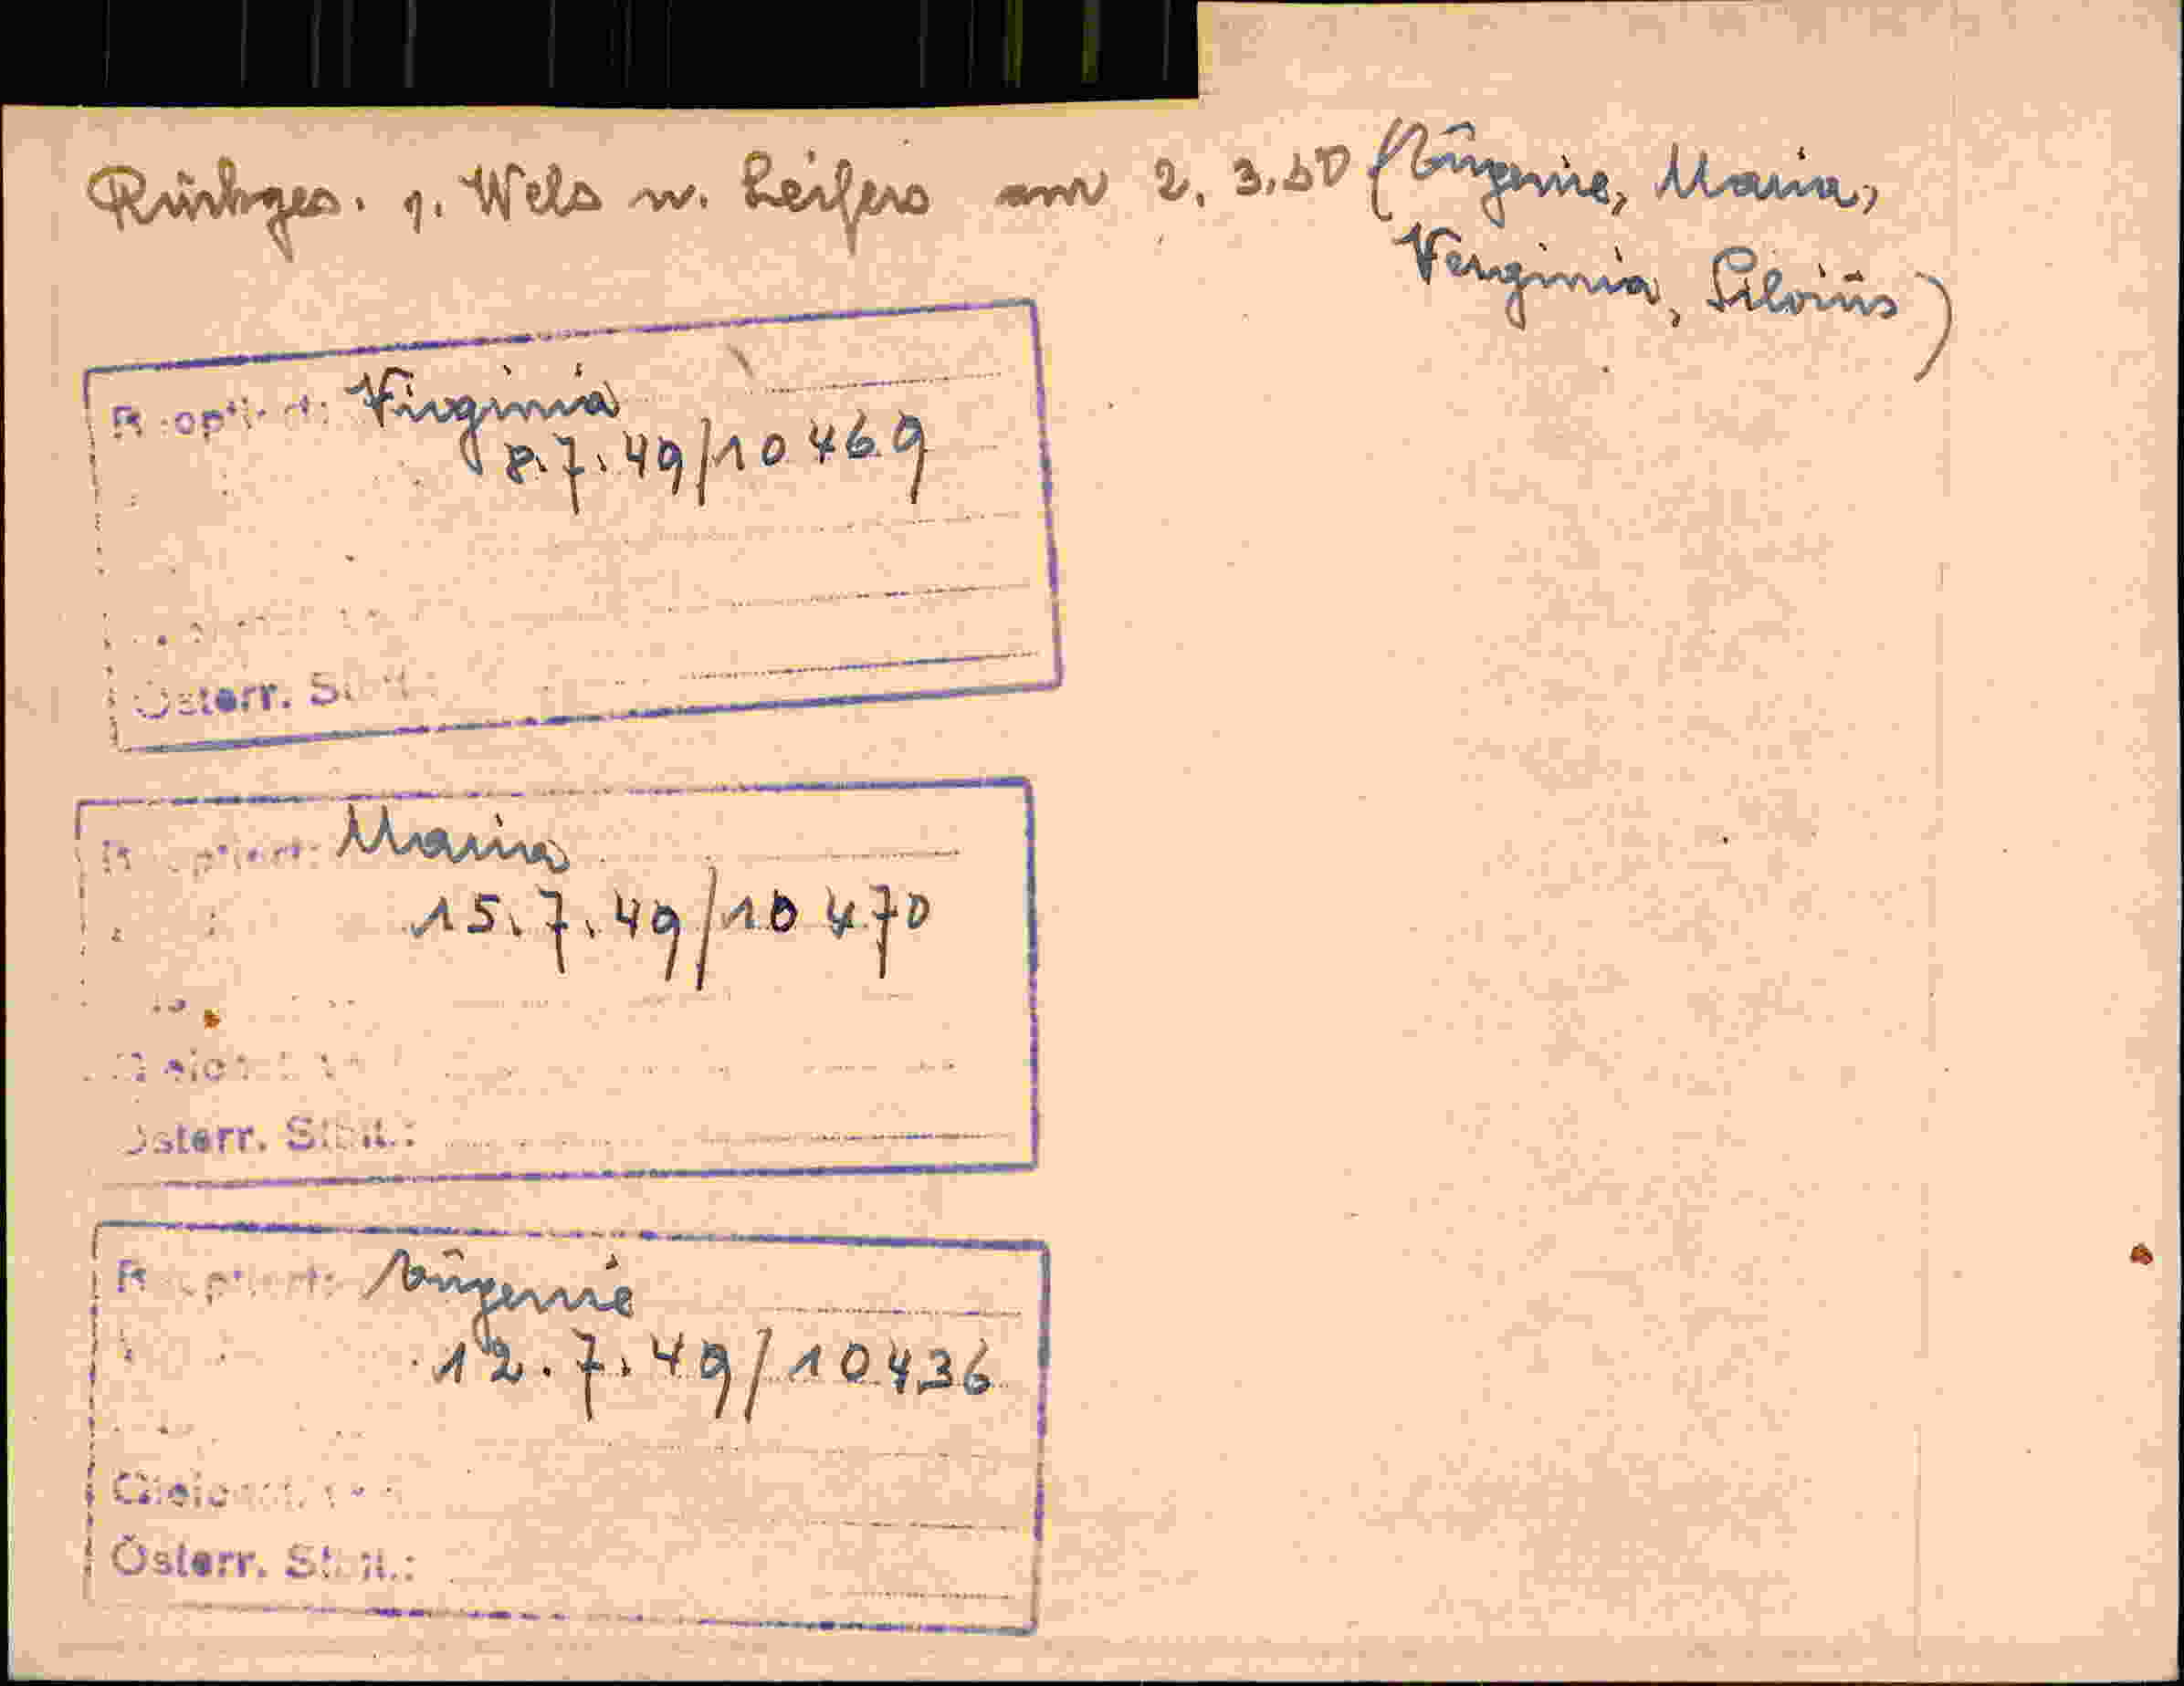 Rückges. v. Wels n. Leifers am 2. 3. 50 (Eugenie, Maria,
Verginia, Silvius)
Reoptiert: Virginia
8.7.49/10469
Österr. St
Reoptiert: Maria
15.7.49/10470
Österr. Stbit.:
Reoptiert: Eugenie
12.7.49/10436
Österr. Stbit.: